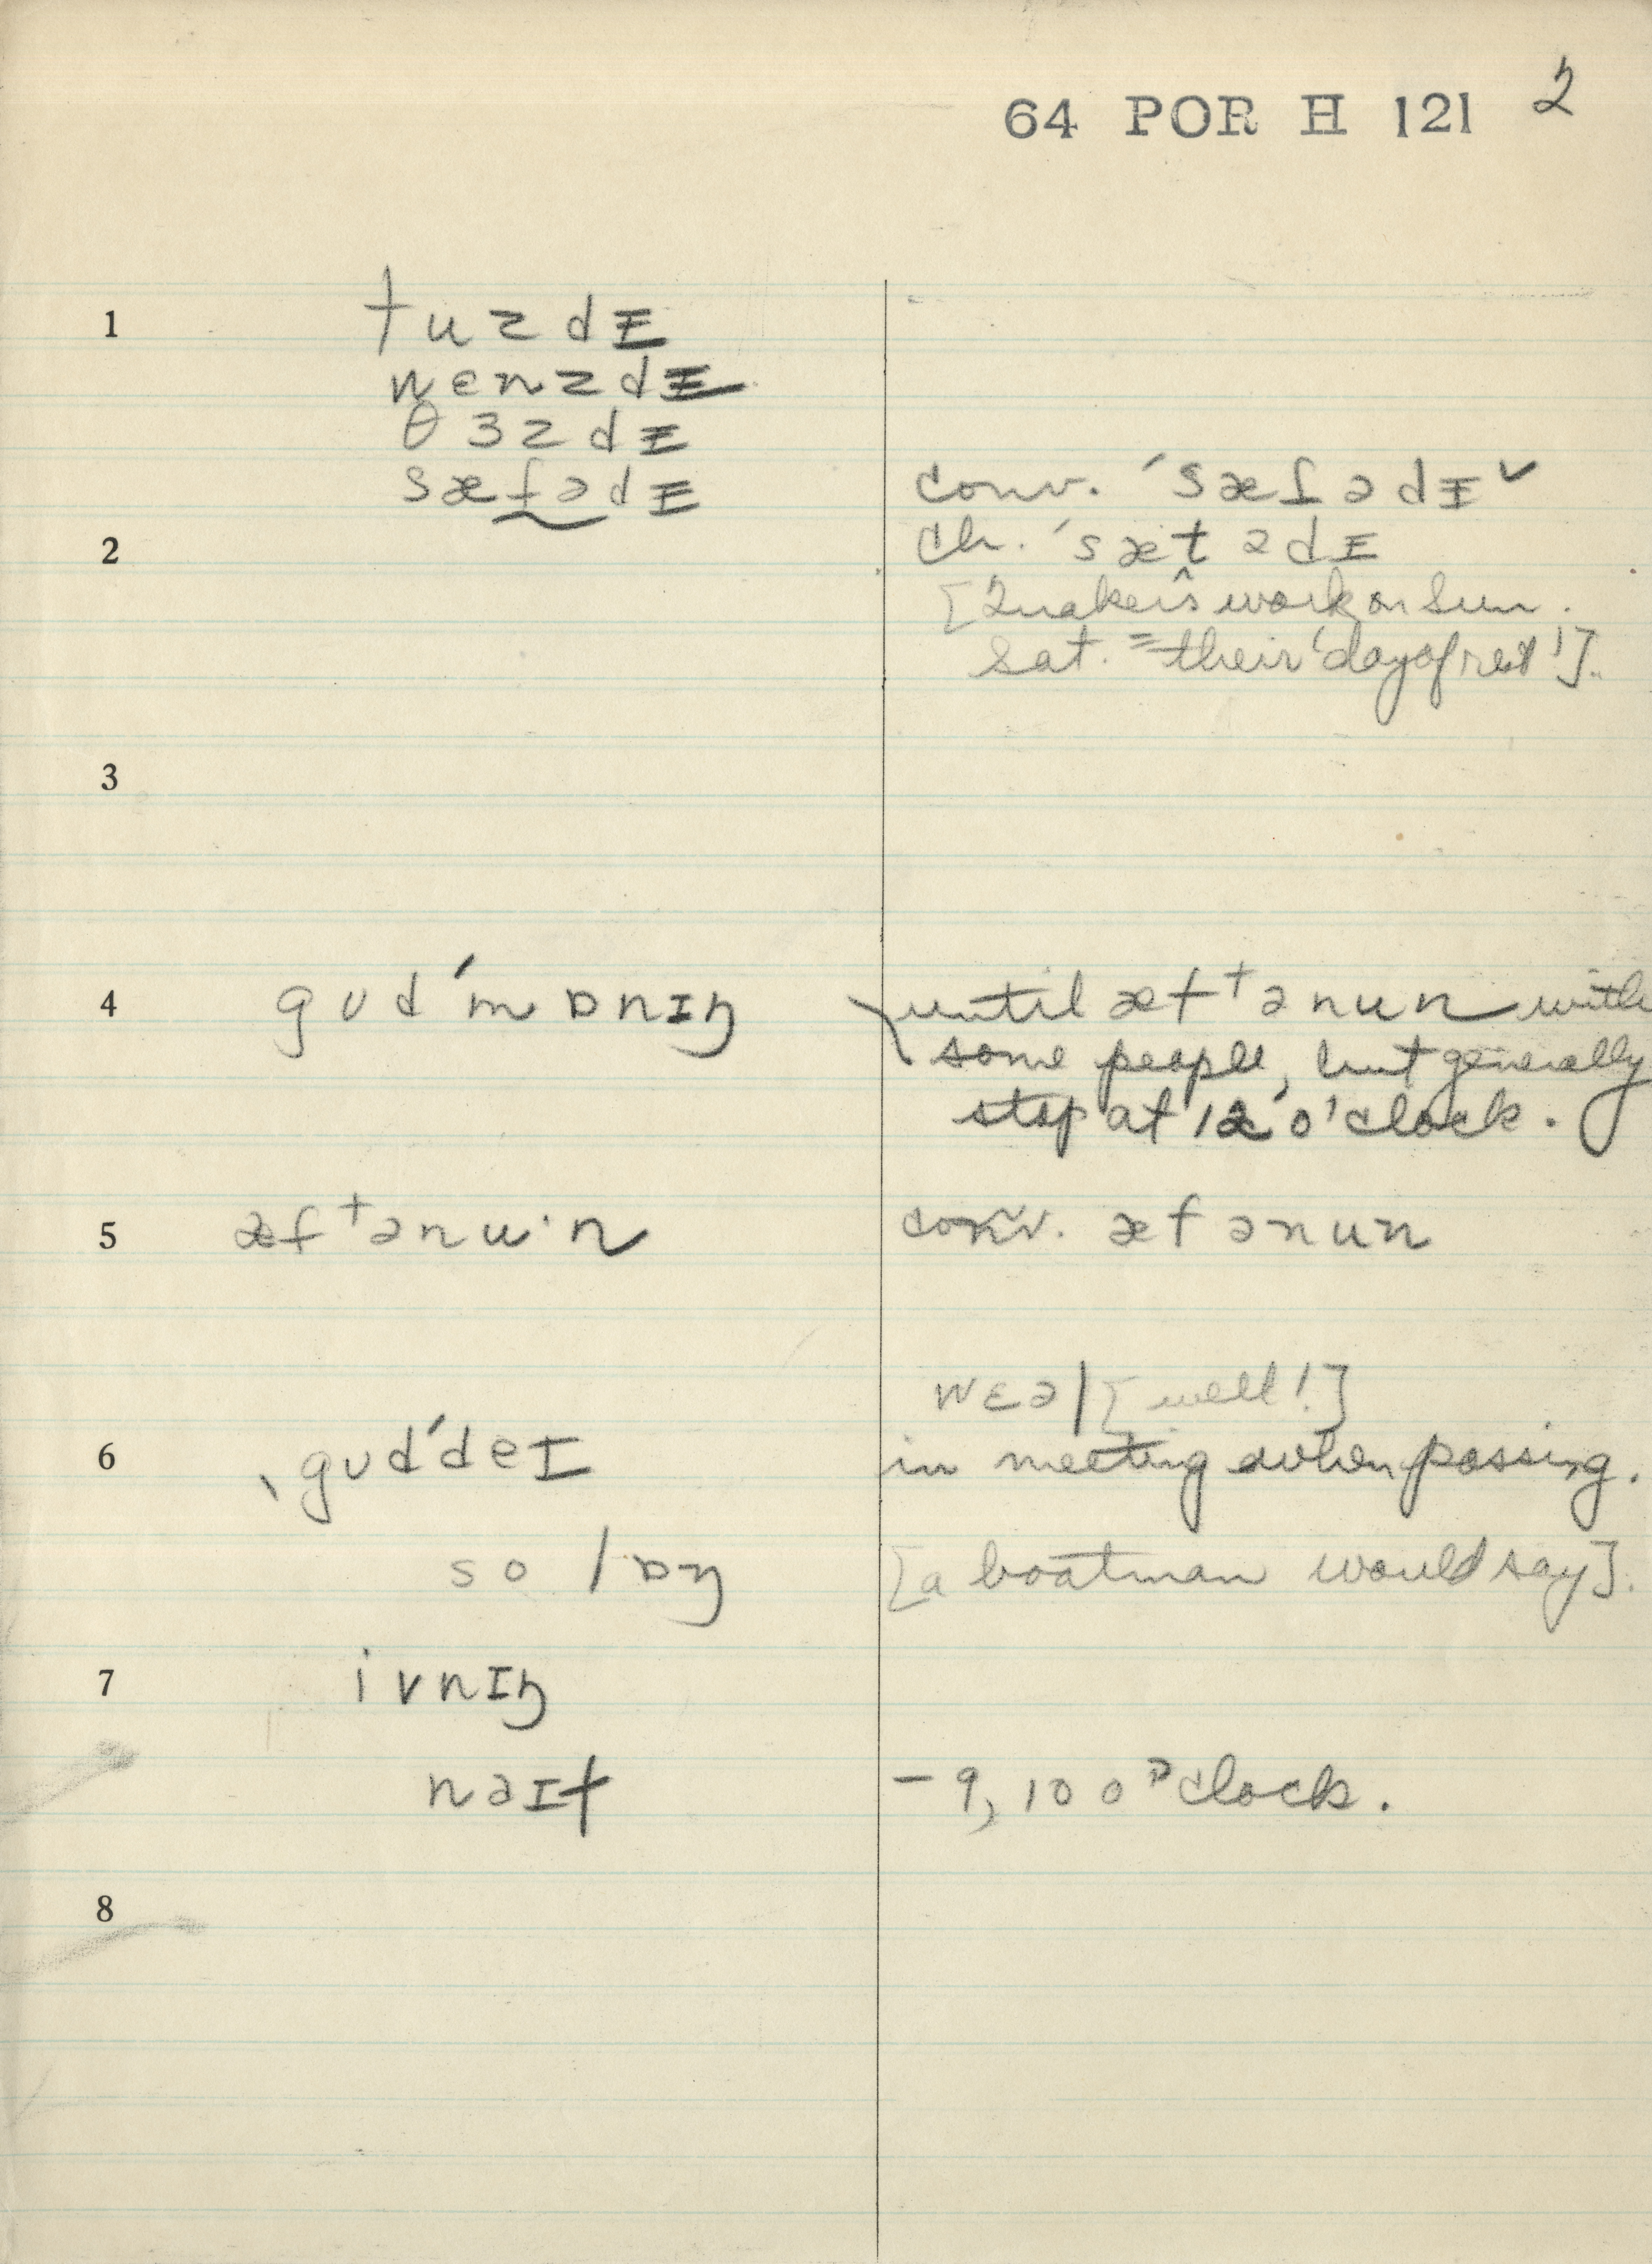 64 POR H 121 2
1 tuzdᵻ
wenzdᵻ
θɜzdᵻ
sæfədᵻ conv. ˊsæfədᵻ ✓
2 ch. ˊsætədᵻ
[Quakers work on Sun.
Sat. = their 'day of rest'].
3
4 gʊdˊmɒnɪŋ until æftənun with
some people, but generally
stop at 12 o'clock.
5 æftənu·n conv. æfənun
wɛə| [well!]
6 ˎgʊdˊdeɪ in meeting when passing.
so lɒŋ [a boatman would say].
7 ivnɪŋ
nəɪt – 9, 10 o'clock.
8